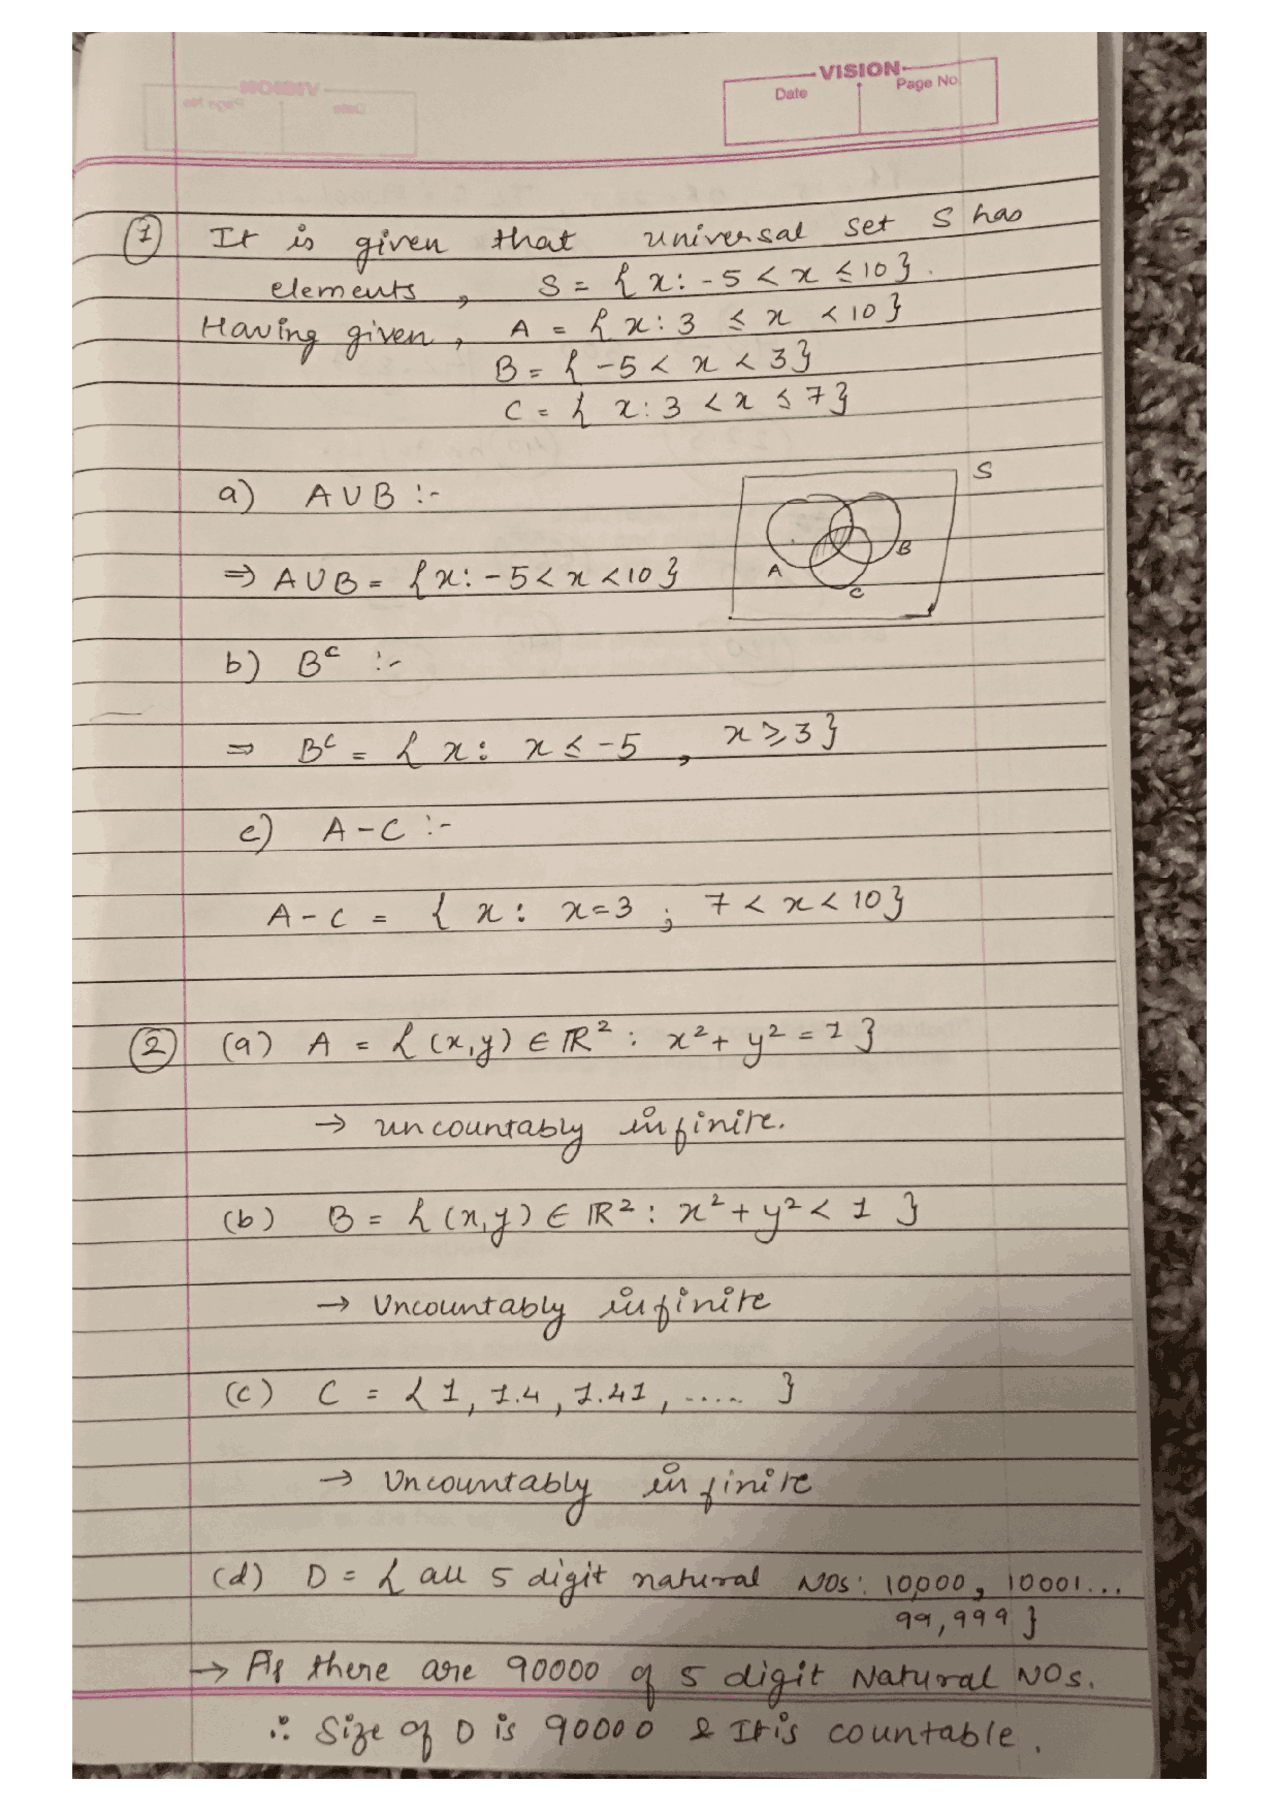 VISION
Date Page No.
① It is given that universal set S has
elements, S = { x: -5 < x ≤ 10 }.
Having given, A = { x: 3 ≤ x < 10 }
B = { -5 < x < 3 }
C = { x: 3 < x ≤ 7 }
a) A ∪ B :-
S
A B C
⇒ A ∪ B = { x: -5 < x < 10 }
b) Bᶜ :-
⇒ Bᶜ = { x: x ≤ -5 , x ≥ 3 }
c) A - C :-
A - C = { x: x = 3 ; 7 < x < 10 }
② (a) A = { (x,y) ∈ ℝ² : x² + y² = 1 }
→ uncountably infinite.
(b) B = { (x,y) ∈ ℝ² : x² + y² < 1 }
→ Uncountably infinite
(c) C = { 1, 1.4, 1.41, ..... }
→ Uncountably infinite
(d) D = { all 5 digit natural NOs: 10,000, 10001...
99,999 }
→ As there are 90000 of 5 digit Natural NOs.
∴ Size of D is 90000 & It is countable.